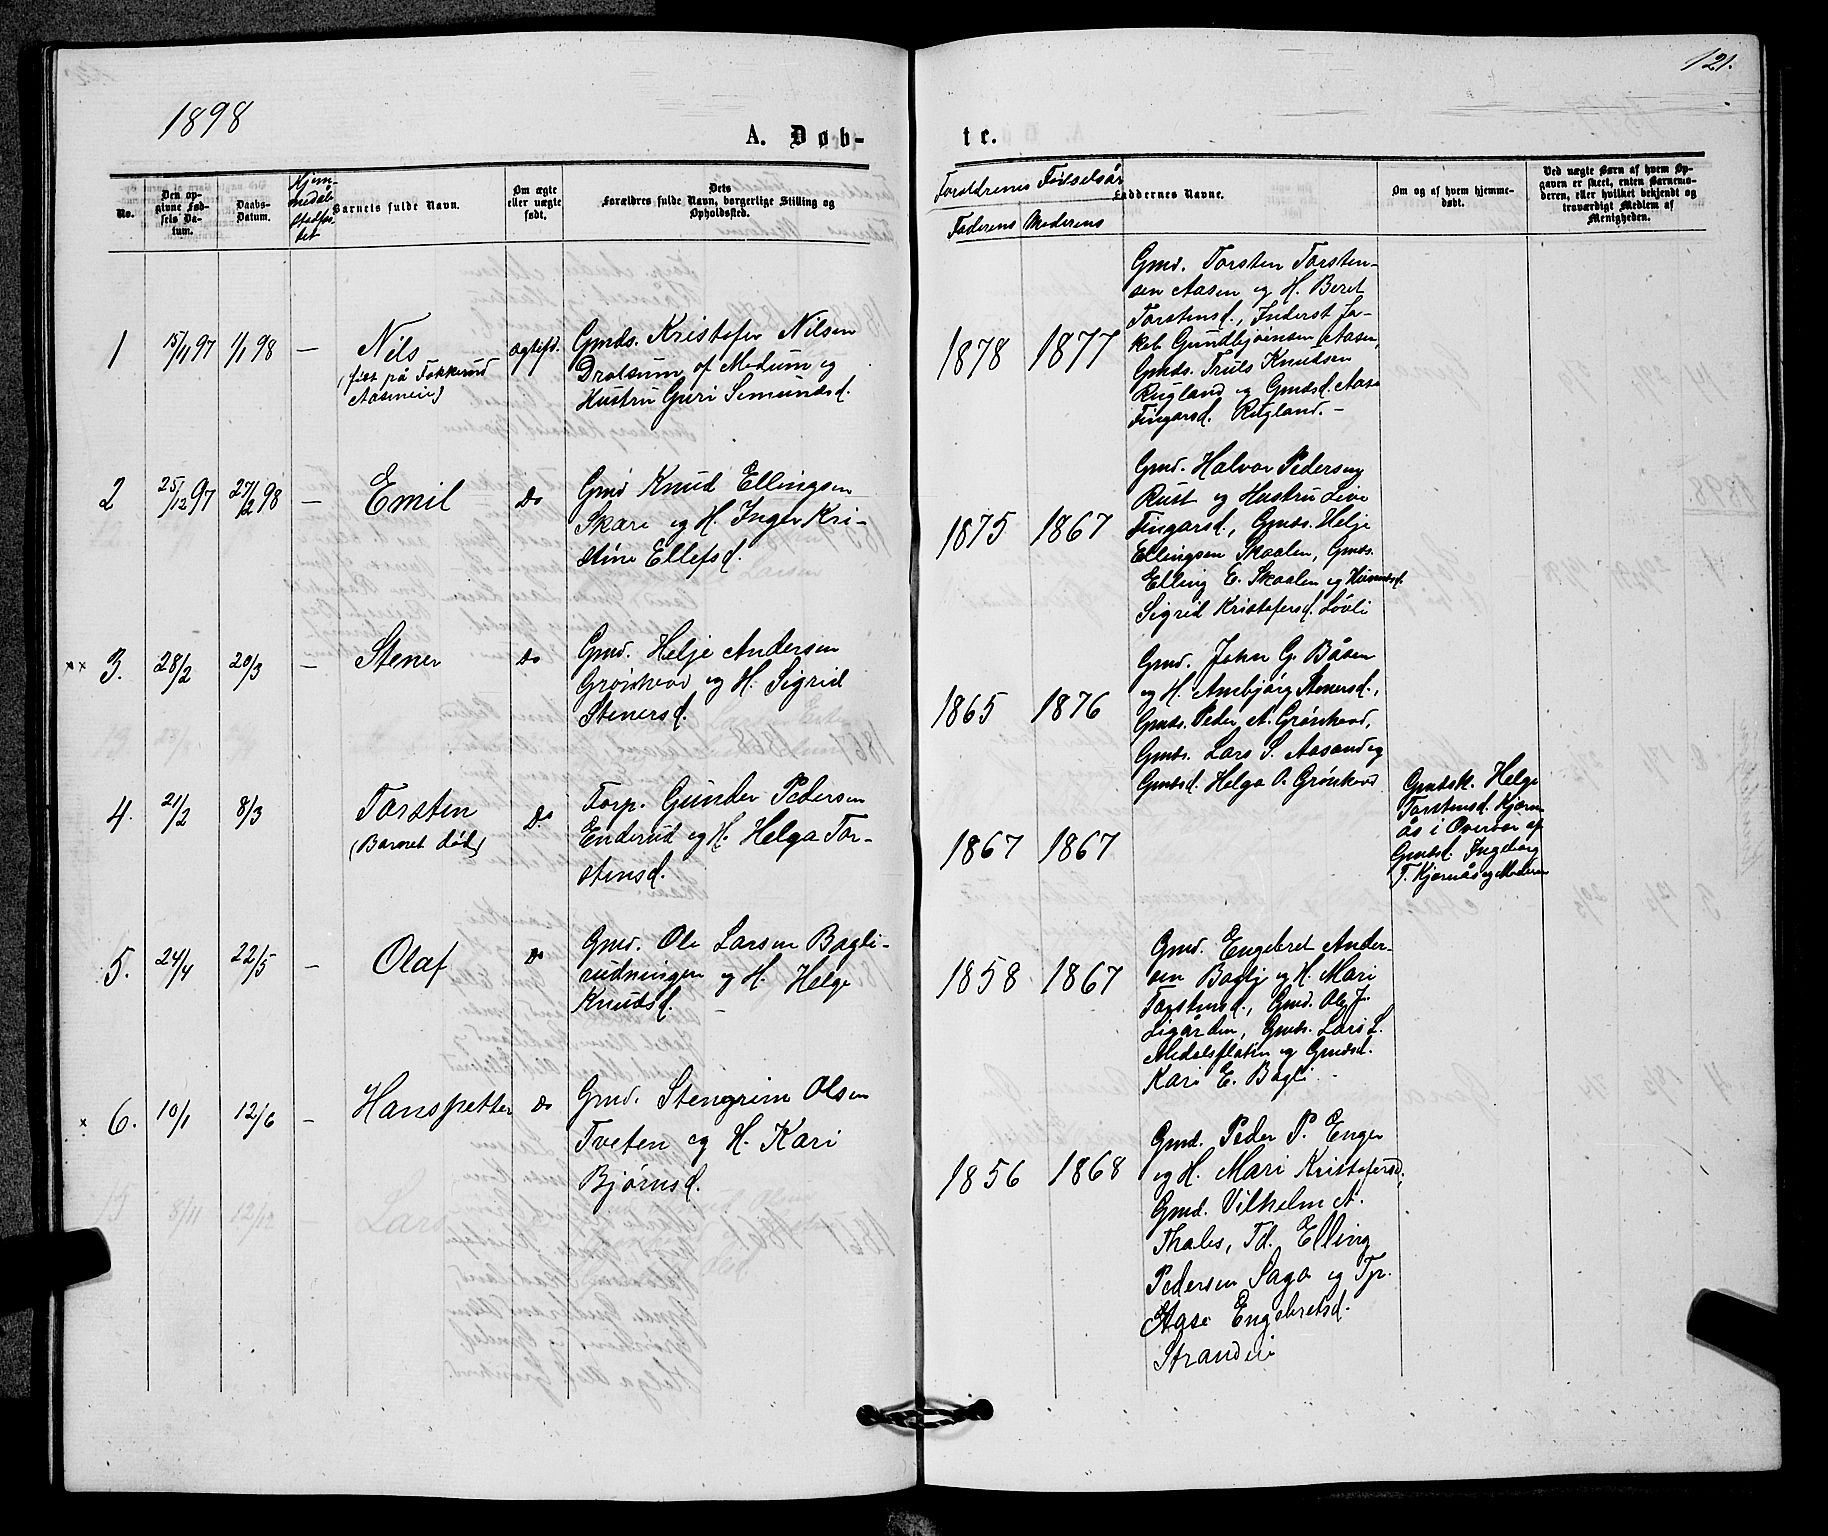 121.
1898
A. Døb-
te.
No.
Den op-
givne Fød-
sels Da-
tum.
Daabs-
Datum.
Hjem-
medåb
Stadfæ-
tet
Barnets fulde Navn.
Om ægte
eller uægte
født.
Dets
Forældres fulde Navn, borgerlige Stilling og
Opholdssted.
Foreldrenes Födselsår
Faderens Moderens
Faddernes Navne.
Om og af hvem hjemme-
døbt.
Ved uægte Børn af hvem Op-
gaven er skeet, enten Barnemo-
deren, eller hvilket bekjendt og
troværdigt Medlem af
Menigheden.
1 15/11 97 1/1 98 — Nils
Aasmen)
ogtefd.
Gmds. Kristofer Nilsen
Drolsum af Modum og
Hustru Guri Simundsd.
1878 1877
Gmd. Torsten Torsten-
sen Aasen og H. Beret
Torstensd., Inderst Ja-
kob Gundbjørnsen Aasen,
Gmds. Truls Knudsen
Rugland og Gmdsd. Aase
Fingarsd. Rugland. -
2 25/12 97 27/2 98 — Emil Do
Gmd Knud Ellingsen
Skare og H. Inger Kri-
stine Ellefsd.
1875 1867
Gmd. Halvor Pedersen
Rust og Hustru Live
Fingarsd., Gmds. Helje
Ellingsen Skaalen, Gmds.
Elling E. Skaalen og
Sigrid Kristofersd. Lövli
xx 3. 28/2 20/3 — Stener Do
Gmd. Helje Andersen
Grønhovd og H. Sigrid
Stenersd.
1865 1876
Gmd. John G. Båsen
og H. Ambjörg Stenersd.,
Gmds. Peder A. Grönhovd,
Gmds. Lars S. Aasand og
Gmdsd. Helga O. Grönhovd
4. 21/2 8/3 Torsten
(Barnet död)
Do
Torp. Gunder Pedersen
Enderud og H. Helga Tor-
stensd.
1867 1867
Gmdsk. Helge
Torstensd. Kjörn-
ås i Overbor af
Gmdsd. Ingeborg
T. Kjørnås og Moderen
5. 24/4 22/5 — Olaf Do
Gmd. Ole Larsen Bagli-
rudningen og H. Helge
Knudsd. -
1858 1867
Gmd. Engebret Ander-
sen Baglij og H. Mari
Torstensd., Gmd. Ole J.
Ligården, Gmds. Lars L.
Medalsflaten og Gmdsd.
Kari E. Bagli
x 6. 10/1 12/6 — Hanspetter do
Gmd. Stengrim Olsen
Tveten og H. Kari
Bjørnsd.
1856 1868
Gmd. Peder P. Enger
og H. Mari Kristofersd,
Gmd. Vilhelm A.
Thales, Td. Elling
Pedersen Saga og Tp.
Aase Engebretsd.
Strandin